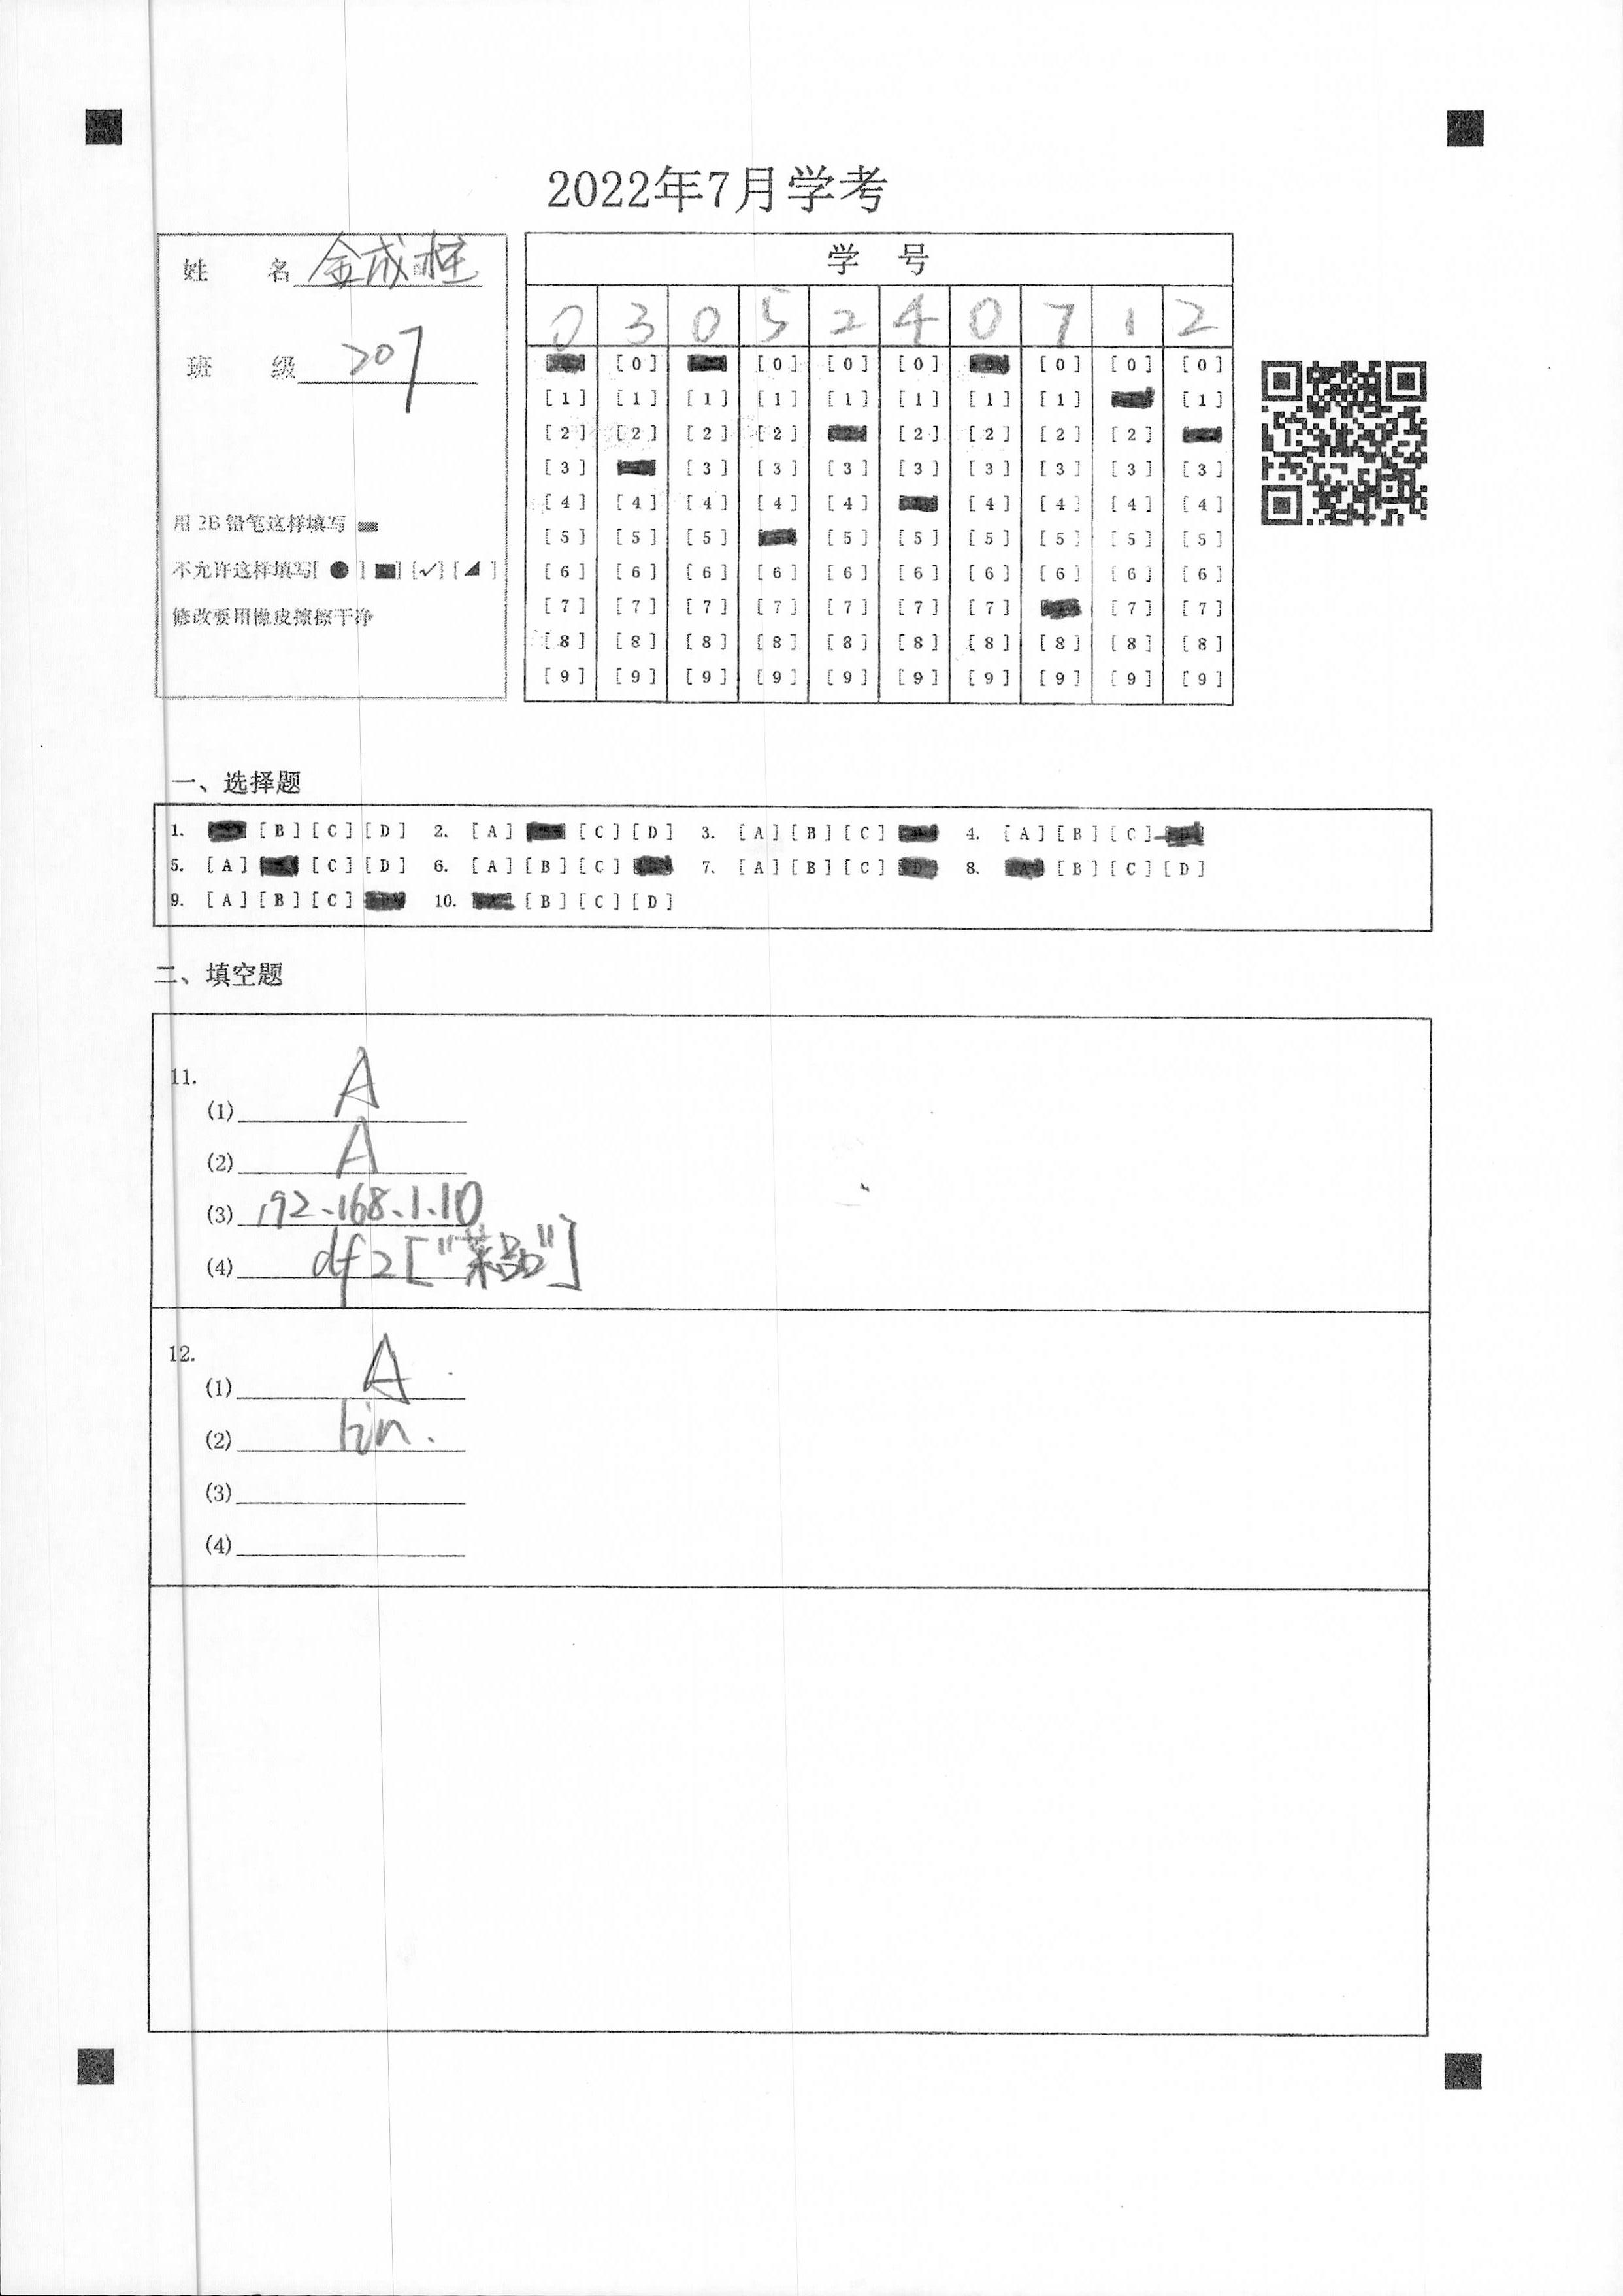 2022年7月学考
姓 名 金成柱
班 级 207
用2B铅笔这样填写
不允许这样填写[ ● ] [■] [✓] [◢ ]
修改要用橡皮擦擦干净
学 号
0 3 0 5 2 4 0 7 1 2
[0] [0] [0] [0] [0] [0] [0]
[1] [1] [1] [1] [1] [1] [1] [1] [1]
[2] [2] [2] [2] [2] [2] [2] [2]
[3] [3] [3] [3] [3] [3] [3] [3] [3]
[4] [4] [4] [4] [4] [4] [4] [4] [4]
[5] [5] [5] [5] [5] [5] [5] [5] [5]
[6] [6] [6] [6] [6] [6] [6] [6] [6] [6]
[7] [7] [7] [7] [7] [7] [7] [7] [7]
[8] [8] [8] [8] [8] [8] [8] [8] [8] [8]
[9] [9] [9] [9] [9] [9] [9] [9] [9] [9]
一、选择题
1. [B] [C] [D] 2. [A] [C] [D] 3. [A] [B] [C] 4. [A] [B] [C]
5. [A] [C] [D] 6. [A] [B] [C] 7. [A] [B] [C] [D] 8. [A] [B] [C] [D]
9. [A] [B] [C] 10. [B] [C] [D]
二、填空题
11.
(1) A
(2) A
(3) 192.168.1.10
(4) df2["菜品"]
12.
(1) A
(2) lin.
(3)
(4)